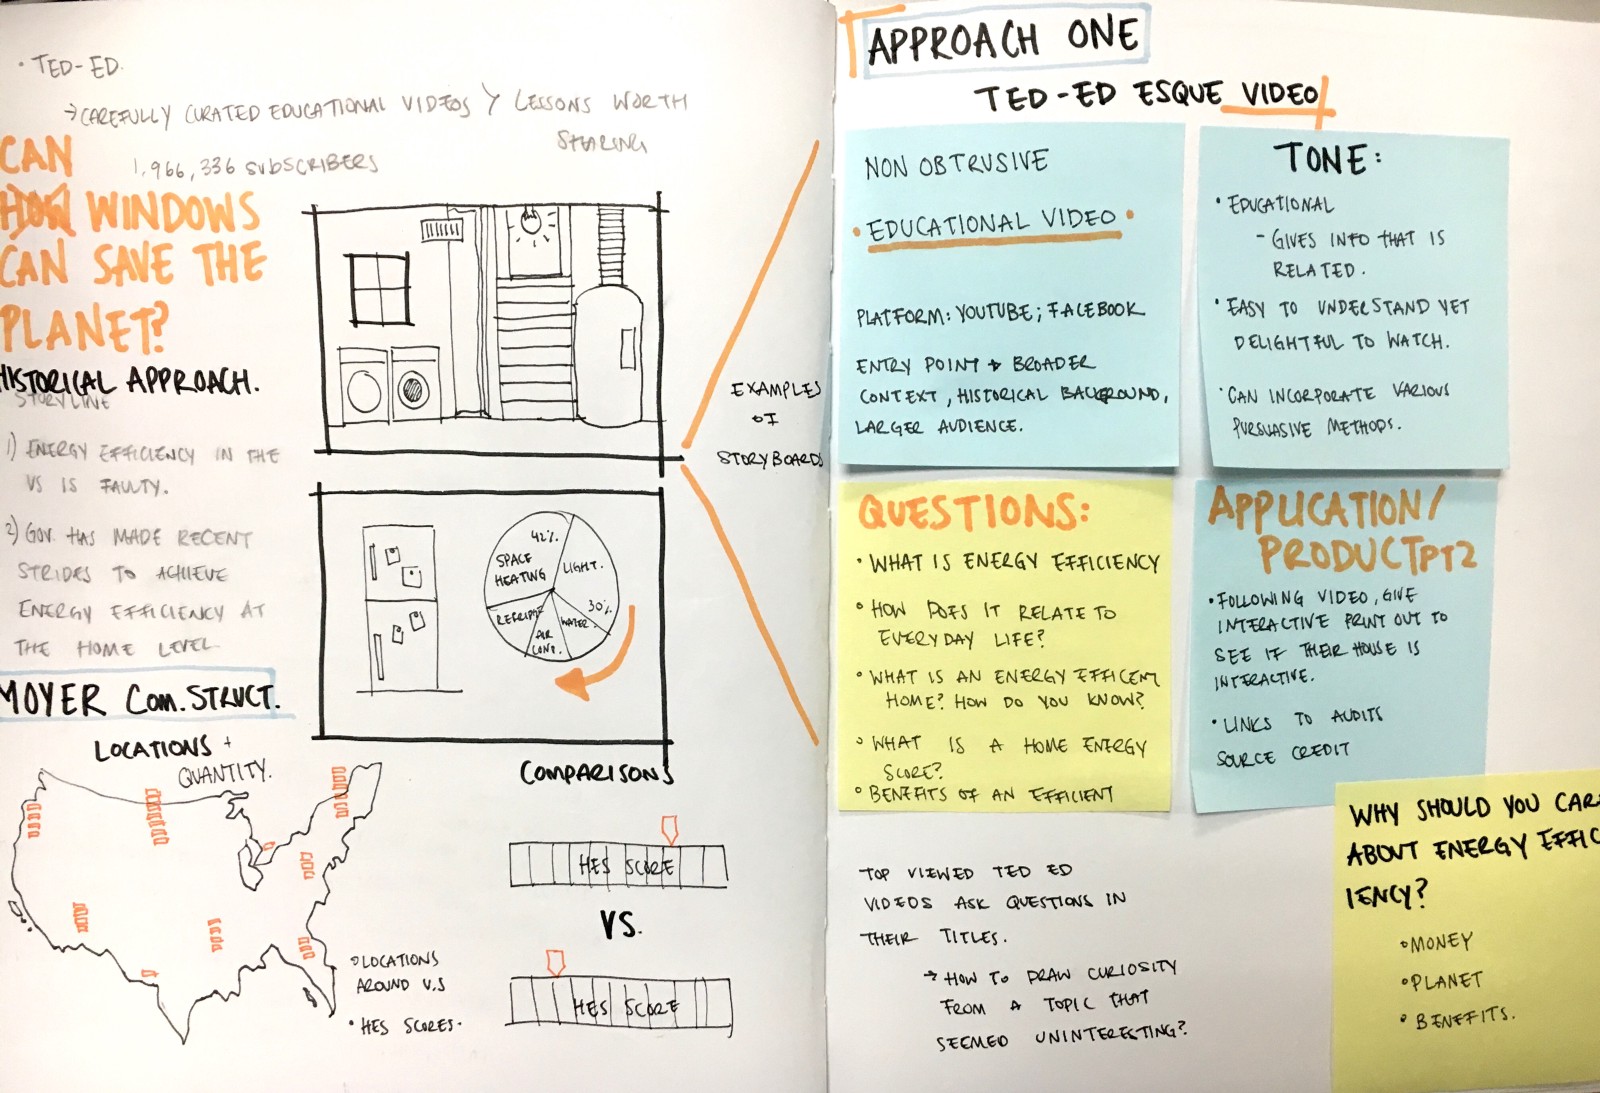 • TED-ED.
→ CAREFULLY CURATED EDUCATIONAL VIDEOS > LESSONS WORTH
SHARING
1,966,336 SUBSCRIBERS
CAN
HOW WINDOWS
CAN SAVE THE
PLANET?
HISTORICAL APPROACH.
STORYLINE
1) ENERGY EFFICIENCY IN THE
US IS FAULTY.
2) GOV. HAS MADE RECENT
STRIDES TO ACHIEVE
ENERGY EFFICIENCY AT
THE HOME LEVEL
MOYER Com. STRUCT.
LOCATIONS +
QUANTITY.
• LOCATIONS
AROUND U.S
• HES SCORES.
42%
SPACE
HEATING
LIGHT.
30%
WATER.
AIR
COND.
COMPARISONS
HES SCORE
VS.
HES SCORE
EXAMPLES
OF
STORYBOARDS
APPROACH ONE
TED-ED ESQUE VIDEO
NON OBTRUSIVE
• EDUCATIONAL VIDEO •
PLATFORM: YOUTUBE; FACEBOOK
ENTRY POINT → BROADER
CONTEXT, HISTORICAL BACKGROUND,
LARGER AUDIENCE.
TONE:
• EDUCATIONAL
- GIVES INFO THAT IS
RELATED.
• EASY TO UNDERSTAND YET
DELIGHTFUL TO WATCH.
• CAN INCORPORATE VARIOUS
PURSUASIVE METHODS.
QUESTIONS:
• WHAT IS ENERGY EFFICIENCY
• HOW DOES IT RELATE TO
EVERYDAY LIFE?
• WHAT IS AN ENERGY EFFICENT
HOME? HOW DO YOU KNOW?
• WHAT IS A HOME ENERGY
SCORE?
• BENEFITS OF AN EFFICIENT
APPLICATION/
PRODUCT PT2
• FOLLOWING VIDEO, GIVE
INTERACTIVE PRINT OUT TO
SEE IF THEIR HOUSE IS
INTERACTIVE.
• LINKS TO AUDITS
SOURCE CREDIT
TOP VIEWED TED ED
VIDEOS ASK QUESTIONS IN
THEIR TITLES.
→ HOW TO DRAW CURIOSITY
FROM A TOPIC THAT
SEEMED UNINTERESTING?
WHY SHOULD YOU CAR
ABOUT ENERGY EFFIC
IENCY?
• MONEY
• PLANET
• BENEFITS.